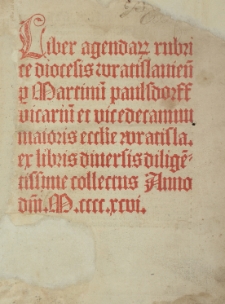 Liber agendaꝝ rubri
ce diocesis wratislavieñ
ꝑ Martinū paulsdorff
vicariū et vicedecanum
maioris ecclie wratisla.
ex libris diuersis diligē-
tissime collectus Anno
dm̄. M.cccc.xcvi.